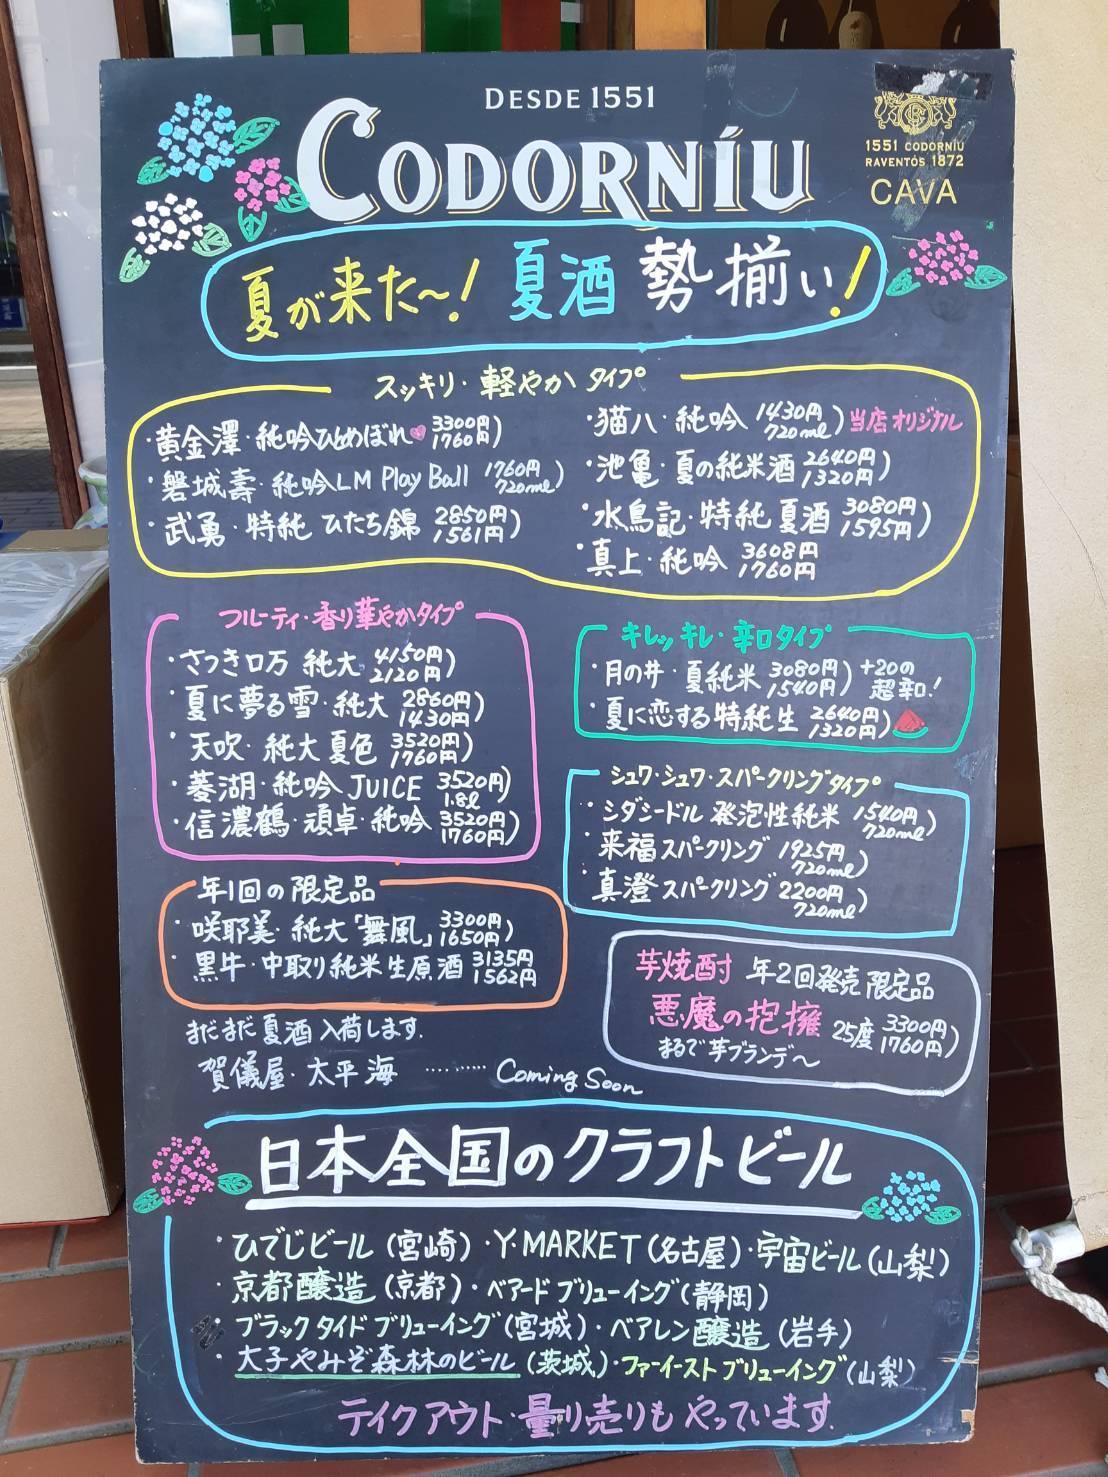 DESDE 1551
CODORNÍU
1551 CODORNÍU
RAVENTÓS 1872
CAVA
夏が来た〜! 夏酒 勢揃い!
スッキリ・軽やかタイプ
・黄金澤・純吟ひとめぼれ 3300円 1760円)
・磐城壽・純吟LM Play Ball 1760円 720ml)
・武勇・特純 ひたち錦 2850円 1561円)
・猫八・純吟 1430円 720ml) 当店オリジナル
・池亀・夏の純米酒 2640円 1320円)
・水鳥記・特純 夏酒 3080円 1595円)
・真上・純吟 3608円 1760円
フルーティ・香り華やかタイプ
・さつき口万 純大 4150円 2120円)
・夏に夢る雪・純大 2860円 1430円)
・天吹・純大夏色 3520円 1760円)
・菱湖・純吟 JUICE 3520円 1.8l)
・信濃鶴・頑卓・純吟 3520円 1760円)
キレッキレ・辛口タイプ
・月の井・夏純米 3080円 1540円) +20の超辛口!
・夏に恋する特純生 2640円 1320円)
シュワ・シュワ・スパークリングタイプ
・シダシードル 発泡性純米 1540円 720ml)
・来福スパークリング 1925円 720ml)
・真澄スパークリング 2200円 720ml)
年1回の限定品
・咲耶美・純大「舞風」3300円 1650円)
・黒牛・中取り純米生原酒 3135円 1562円
芋焼酎 年2回発売 限定品
悪魔の抱擁 25度 3300円 1760円)
まるで芋ブランデ〜
まだまだ夏酒入荷します.
賀儀屋・太平海 ‥‥‥‥ Coming Soon
日本全国のクラフトビール
・ひでじビール(宮崎)・Y.MARKET(名古屋)・宇宙ビール(山梨)
・京都醸造(京都)・ベアードブリューイング(静岡)
・ブラックタイドブリューイング(宮城)・ベアレン醸造(岩手)
・大子やみぞ森林のビール(茨城)・ファーイーストブリューイング(山梨)
テイクアウト・量り売りもやっています.